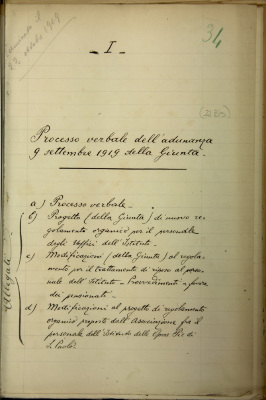 22 ottobre 1919
34
- I -
Processo verbale dell'adunanza
9 settembre 1919 della Giunta -
Allegati
a) Processo verbale -
b) Progetto (della Giunta) di nuovo re-
golamento organico per il personale
degli Uffici dell'Istituto -
c) Modificazioni (della Giunta) al regola-
mento per il trattamento di riposo al perso-
nale dell'Istituto - Provvedimenti a favore
dei pensionati -
d) Modificazioni al progetto di regolamento
organico proposte dall'Associazione fra il
personale dell'Istituto delle Opere Pie di
S. Paolo.